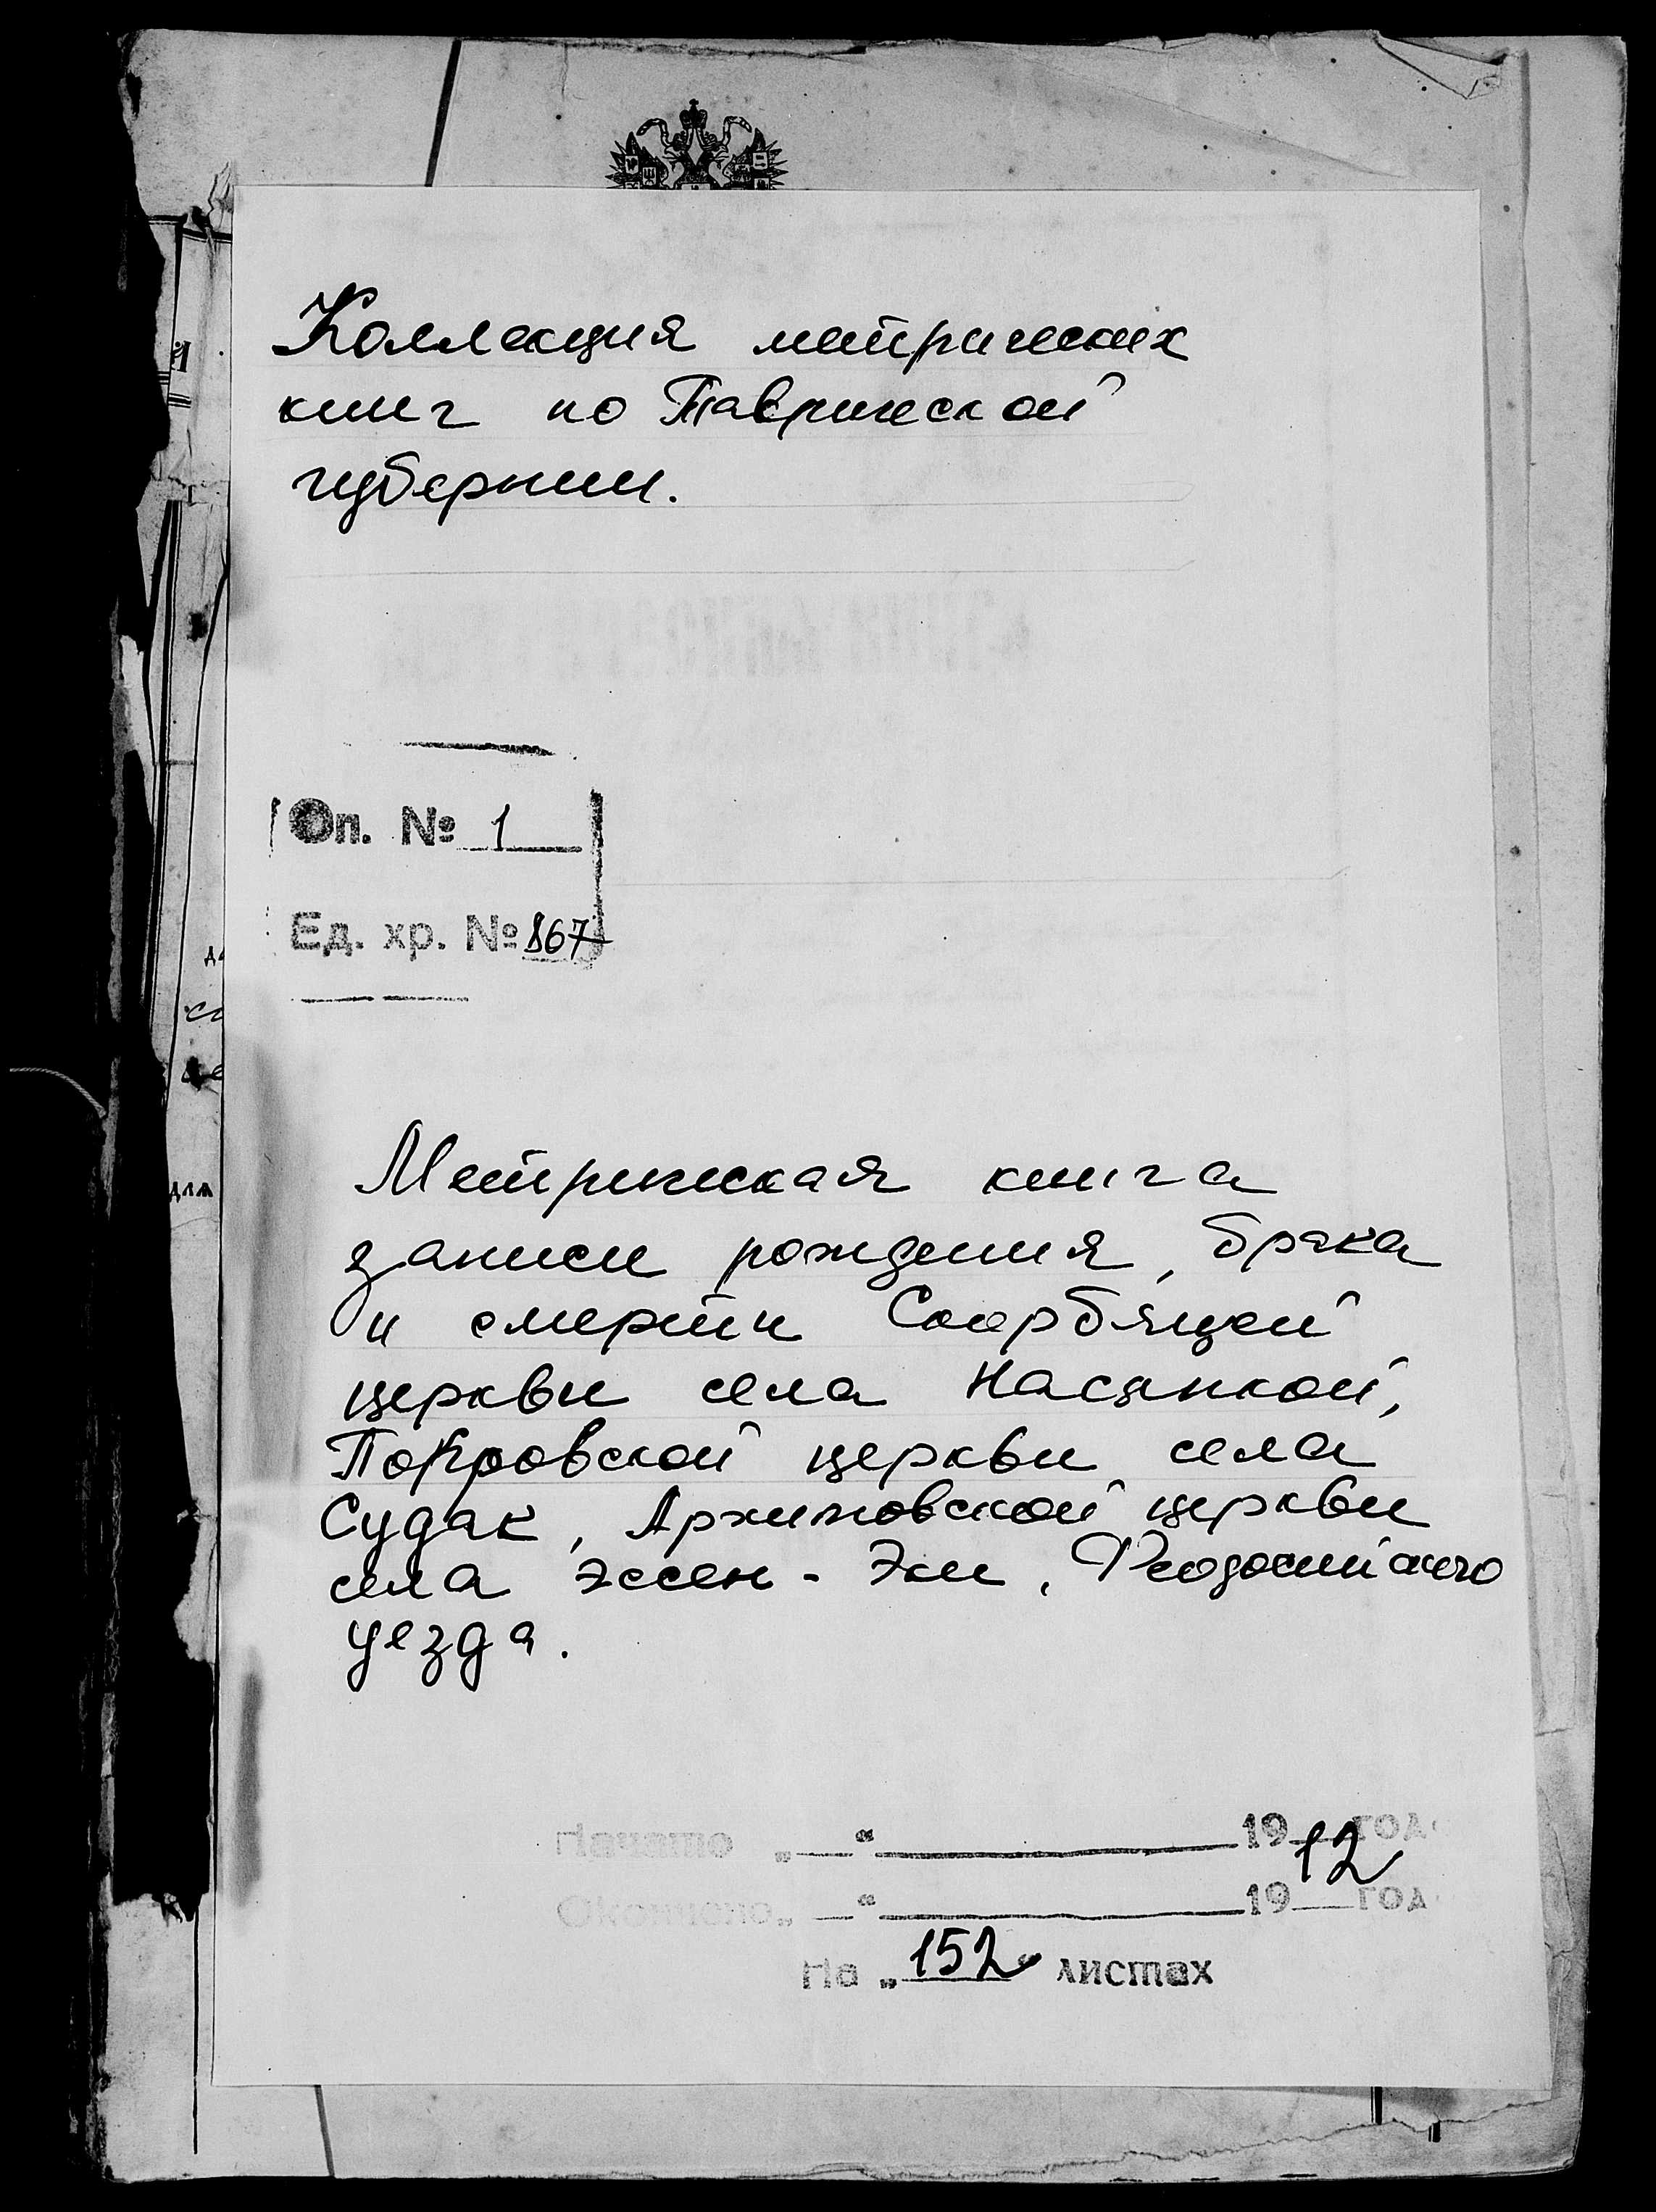 Коллекция метрических
книг по Таврической
губернии.
Оп. № 1
Ед. хр. № 867
Метрическая книга
записи рождения, брака
и смерти Скорбящей
церкви села Насыпкой,
Покровской церкви села
Судак, Архиповской церкви
села Эссен-Эки, Феодосийского
уезда.
Начато „__“ ____ 1912 год
Окончено „__“ ____ 19__ год
На „152“ листах